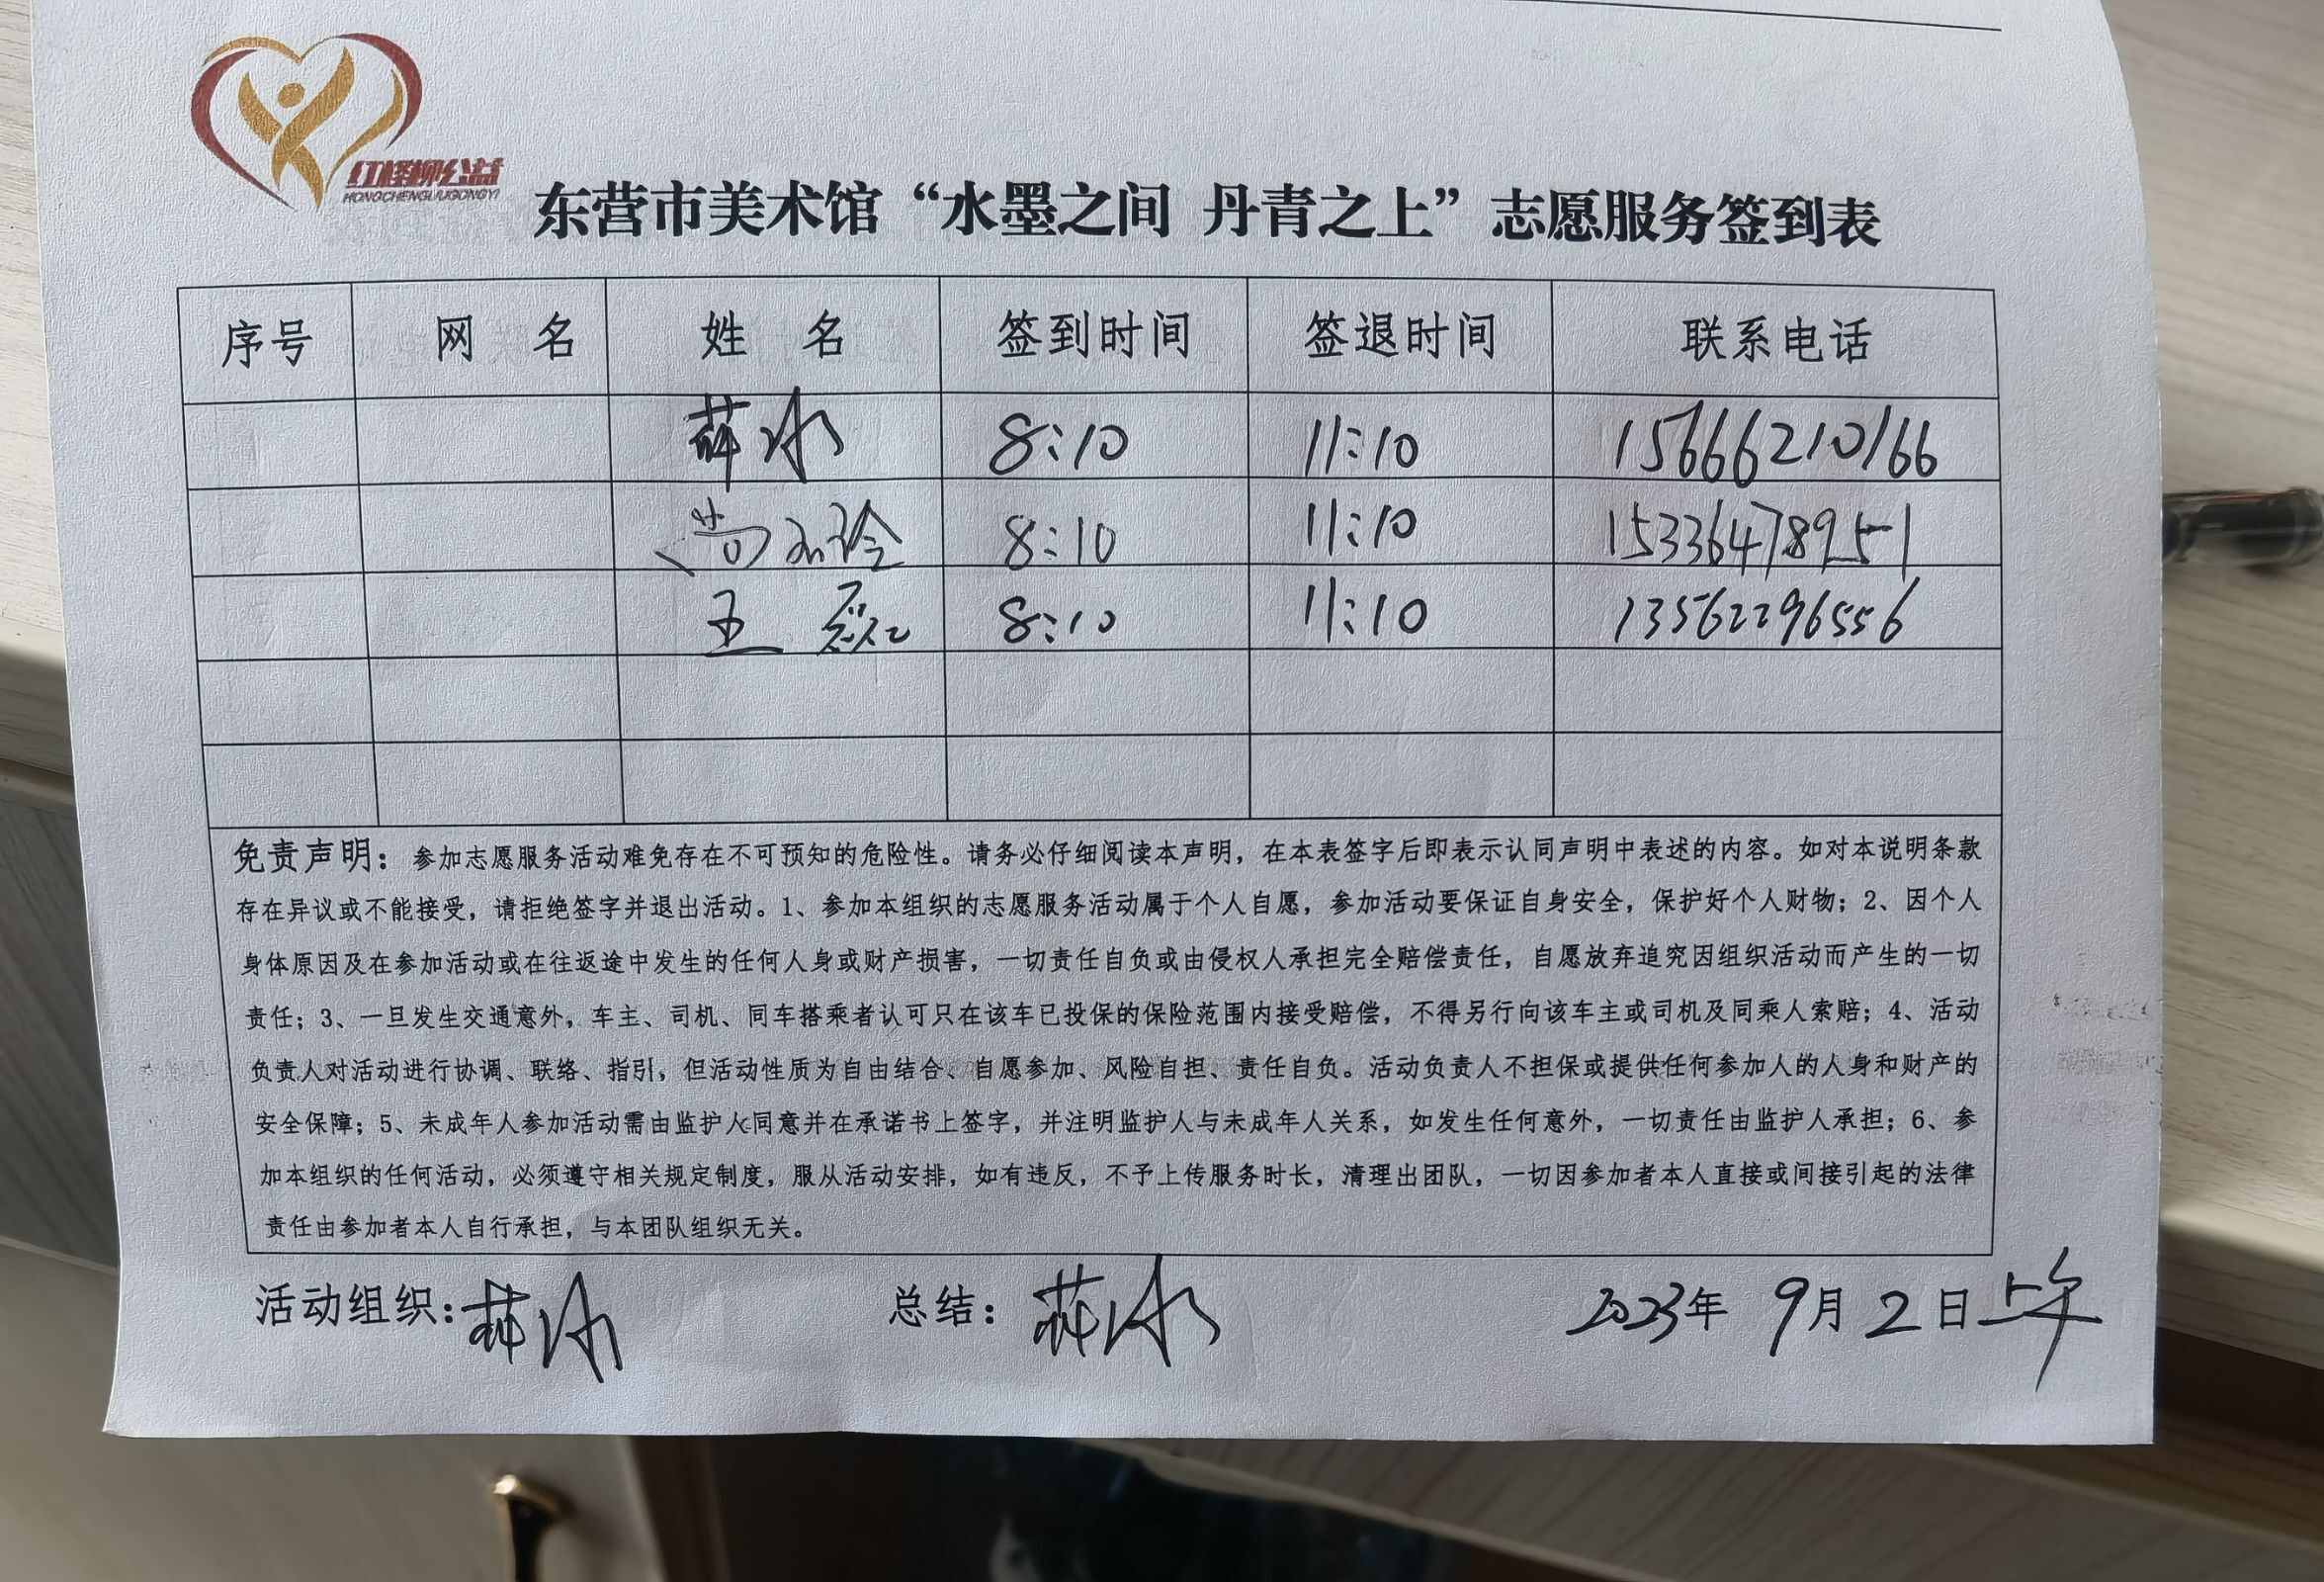 红柽柳公益
HONGCHENGLIUGONGYI
东营市美术馆“水墨之间 丹青之上”志愿服务签到表
序号 网 名 姓 名 签到时间 签退时间 联系电话
薛冰 8:10 11:10 15666210166
尚 玲 8:10 11:10 15336478951
王磊 8:10 11:10 13562296556
免责声明：参加志愿服务活动难免存在不可预知的危险性。请务必仔细阅读本声明，在本表签字后即表示认同声明中表述的内容。如对本说明条款
存在异议或不能接受，请拒绝签字并退出活动。1、参加本组织的志愿服务活动属于个人自愿，参加活动要保证自身安全，保护好个人财物；2、因个人
身体原因及在参加活动或在往返途中发生的任何人身或财产损害，一切责任自负或由侵权人承担完全赔偿责任，自愿放弃追究因组织活动而产生的一切
责任；3、一旦发生交通意外，车主、司机、同车搭乘者认可只在该车已投保的保险范围内接受赔偿，不得另行向该车主或司机及同乘人索赔；4、活动
负责人对活动进行协调、联络、指引，但活动性质为自由结合、自愿参加、风险自担、责任自负。活动负责人不担保或提供任何参加人的人身和财产的
安全保障；5、未成年人参加活动需由监护人同意并在承诺书上签字，并注明监护人与未成年人关系，如发生任何意外，一切责任由监护人承担；6、参
加本组织的任何活动，必须遵守相关规定制度，服从活动安排，如有违反，不予上传服务时长，清理出团队，一切因参加者本人直接或间接引起的法律
责任由参加者本人自行承担，与本团队组织无关。
活动组织：薛冰 总结：薛冰 2023年 9月 2日上午